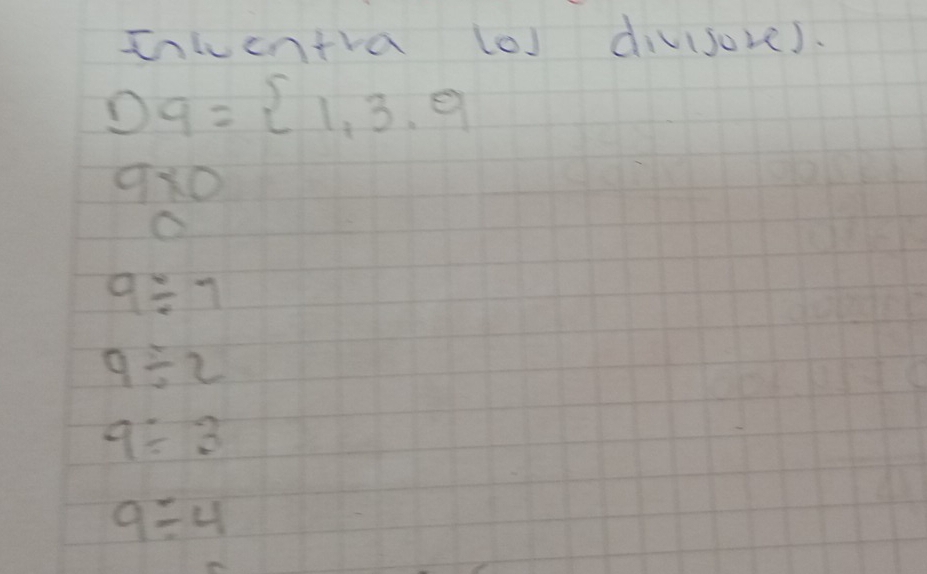 Incuentra los divisores.
D9 = { 1, 3, 9
9x0
0
9 ÷ 1
9 ÷ 2
9 ÷ 3
9 ÷ 4